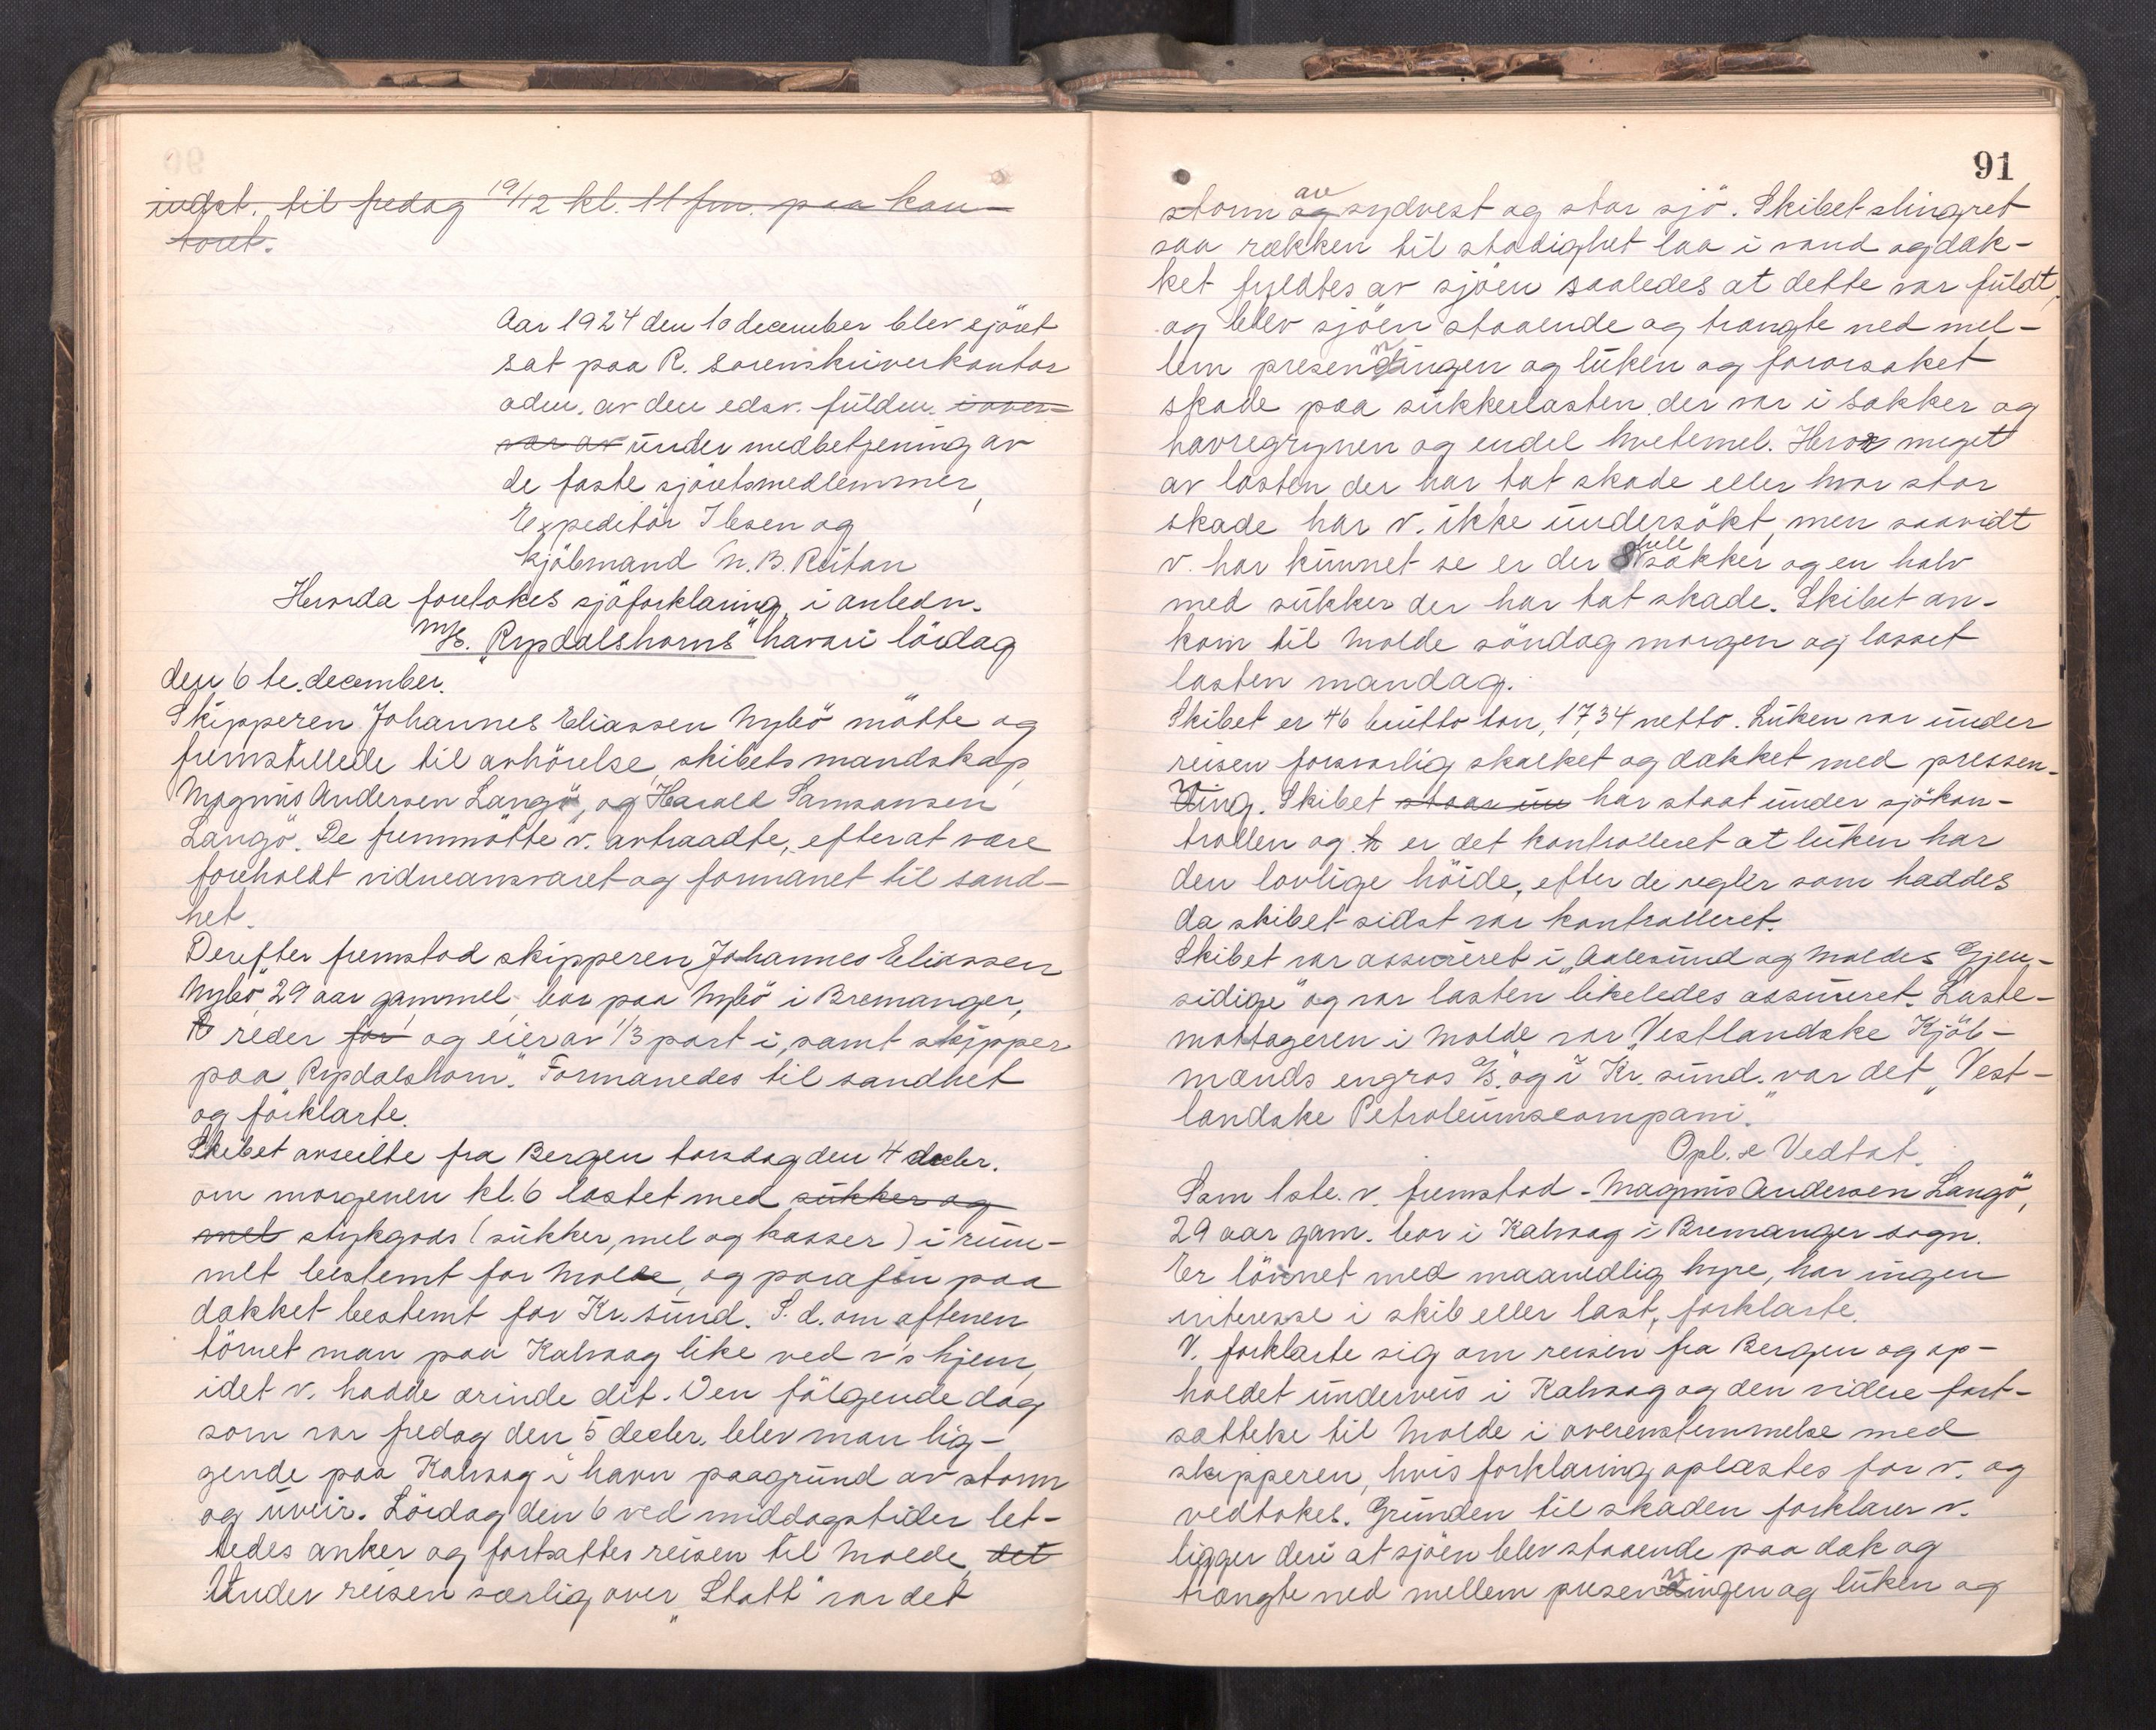 indst. til fredag 19/12 kl. 11 fm. paa kon-
toret.
Aar 1924 den 10 december blev sjöret
sat paa R. sorenskriverkontor
adm. av den edsv. fuldm. i over-
vær av under medbetjening av
de faste sjöretsmedlemmer,
Expeditör Ibsen og
kjöbmand N. B. Reitan
Hvorda foretokes sjöforklaring i anledn.
M/S. "Rypdalshorns" havari lördag
den 6 te. december.
Skipperen Johannes Eliassen Nybö mötte og
fremstillede til avhörelse skibets mandskap,
Magnus Andersen Langö, og Harald Samsonsen
Langö. De fremmötte v. avtraadte, efter at være
foreholdt vidneansvaret og formanet til sand-
het.
Derefter fremstod skipperen Johannes Eliassen
Nybö, 29 aar gammel, bor paa Nybö i Bremanger,
reder for og eier av 1/3 part i, samt skipper
paa "Rypdalshorn." Formanedes til sandhet
og forklarte.
Skibet avseilte fra Bergen torsdag den 4 decbr.
om morgenen kl. 6 lastet med sukker og
mel stykgods (sukker, mel og kasser) i rum-
met bestemt for Molde, og parafin paa
dækket bestemt for Kr.sund. S. d. om aftenen
törnet man paa Kalvaag like ved v's hjem,
idet v. hadde ærinde dit. Den fölgende dag
som var fredag den 5 decbr. blev man lig-
gende paa Kalvaag i havn paagrund av storm
og uveir. Lördag den 6 ved middagstider let-
tedes anker og fortsattes reisen til Molde, det
Under reisen særlig over "Statt" var det
91
storm og av sydvest og stor sjö. Skibet slingret
saa rækken til stadighet laa i vand og dæk-
ket fyldtes av sjöen saaledes at dette var fuldt,
og blev sjöen staaende og trængte ned mel-
lem presenningen og luken og foraarsaket
skade paa sukkerlasten der var i sækker og
havregrynen og endel hvetemel. Hvor meget
av lasten der har tat skade eller hvor stor
skade har v. ikke undersökt, men saavidt
v. har kunnet se er der 8 hele sækker og en halv
med sukker der har tat skade. Skibet an-
kom til Molde söndag morgen og losset
lasten mandag.
Skibet er 46 brutto ton, 17,34 netto. Luken var under
reisen forsvarlig skalket og dækket med pressen-
ning. Skibet staar un har staat under sjökon-
trollen og er det kontrolleret at luken har
den lovlige höide, efter de regler som haddes
da skibet sidst var kontrolleret.
Skibet var assureret i "Aalesund og Moldes Gjen-
sidige" og var lasten likeledes assureret. Laste-
mottageren i Molde var "Vestlandske Kjöb-
mænds engros A/S." og i Kr.sund. var det "Vest-
landske Petroleumscompani."
Opl. & Vedtat.
Som 1ste. v. fremstod - Magnus Andersen Langö,
29 aar gam. bor i Kalvaag i Bremanger sogn.
Er lönnet med maanedlig hyre, har ingen
interesse i skib eller last, forklarte.
V. forklarte sig om reisen fra Bergen og op-
holdet underveis i Kalvaag og den videre fort-
sættelse til Molde i overenstemmelse med
skipperen, hvis forklaring oplæstes for v. og
vedtokes. Grunden til skaden forklarer v.
ligger deri at sjöen blev staaende paa dæk og
trængte ned mellem presenningen og luken og